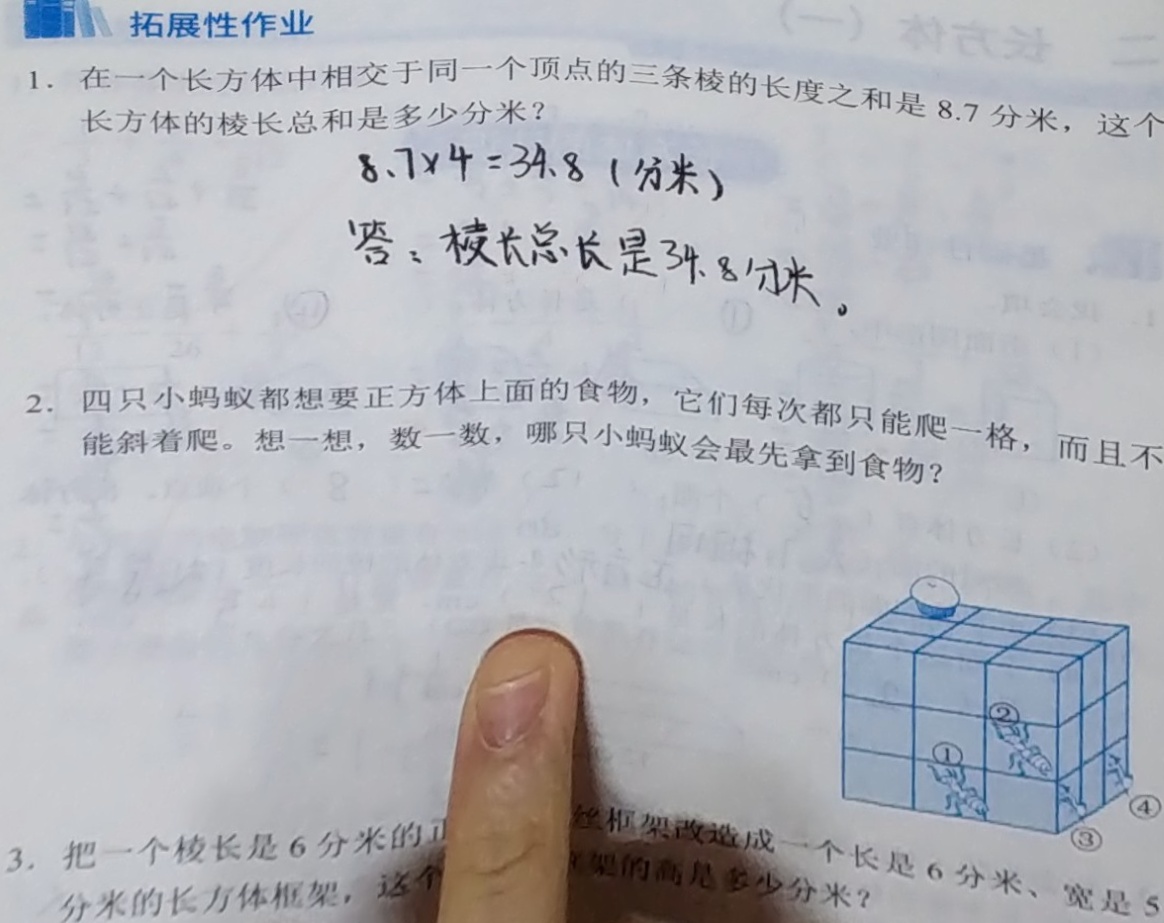 拓展性作业
1. 在一个长方体中相交于同一个顶点的三条棱的长度之和是 8.7 分米，这个
长方体的棱长总和是多少分米？
8.7×4=34.8（分米）
答：棱长总长是34.8分米。
2. 四只小蚂蚁都想要正方体上面的食物，它们每次都只能爬一格，而且不
能斜着爬。想一想，数一数，哪只小蚂蚁会最先拿到食物？
②
①
④
③
3. 把一个棱长是 6 分米的正 丝框架改造成一个长是 6 分米、宽是 5
分米的长方体框架，这个 框架的高是多少分米？
二 长方体（一）